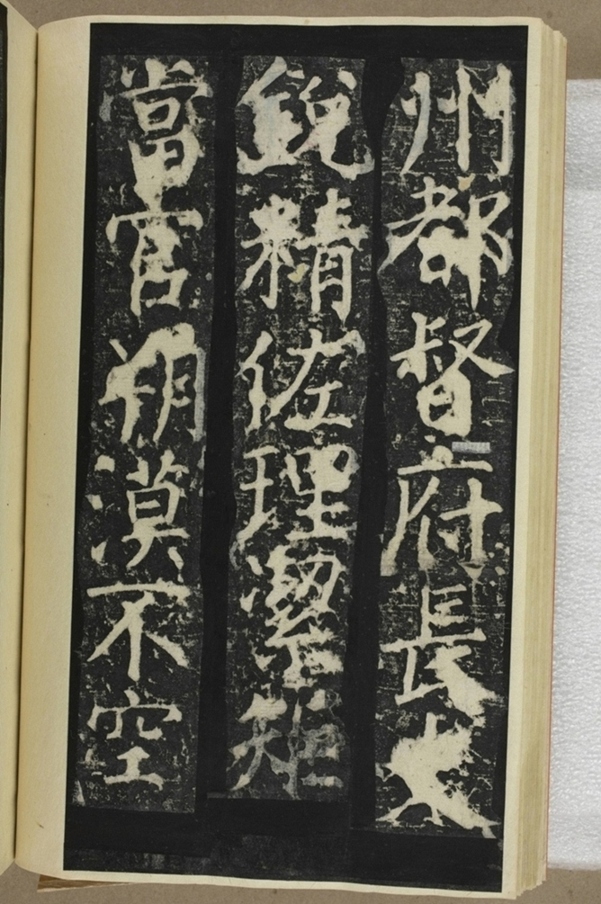 州都督府長史
銳精佐理潔矩
當官朔漠不空